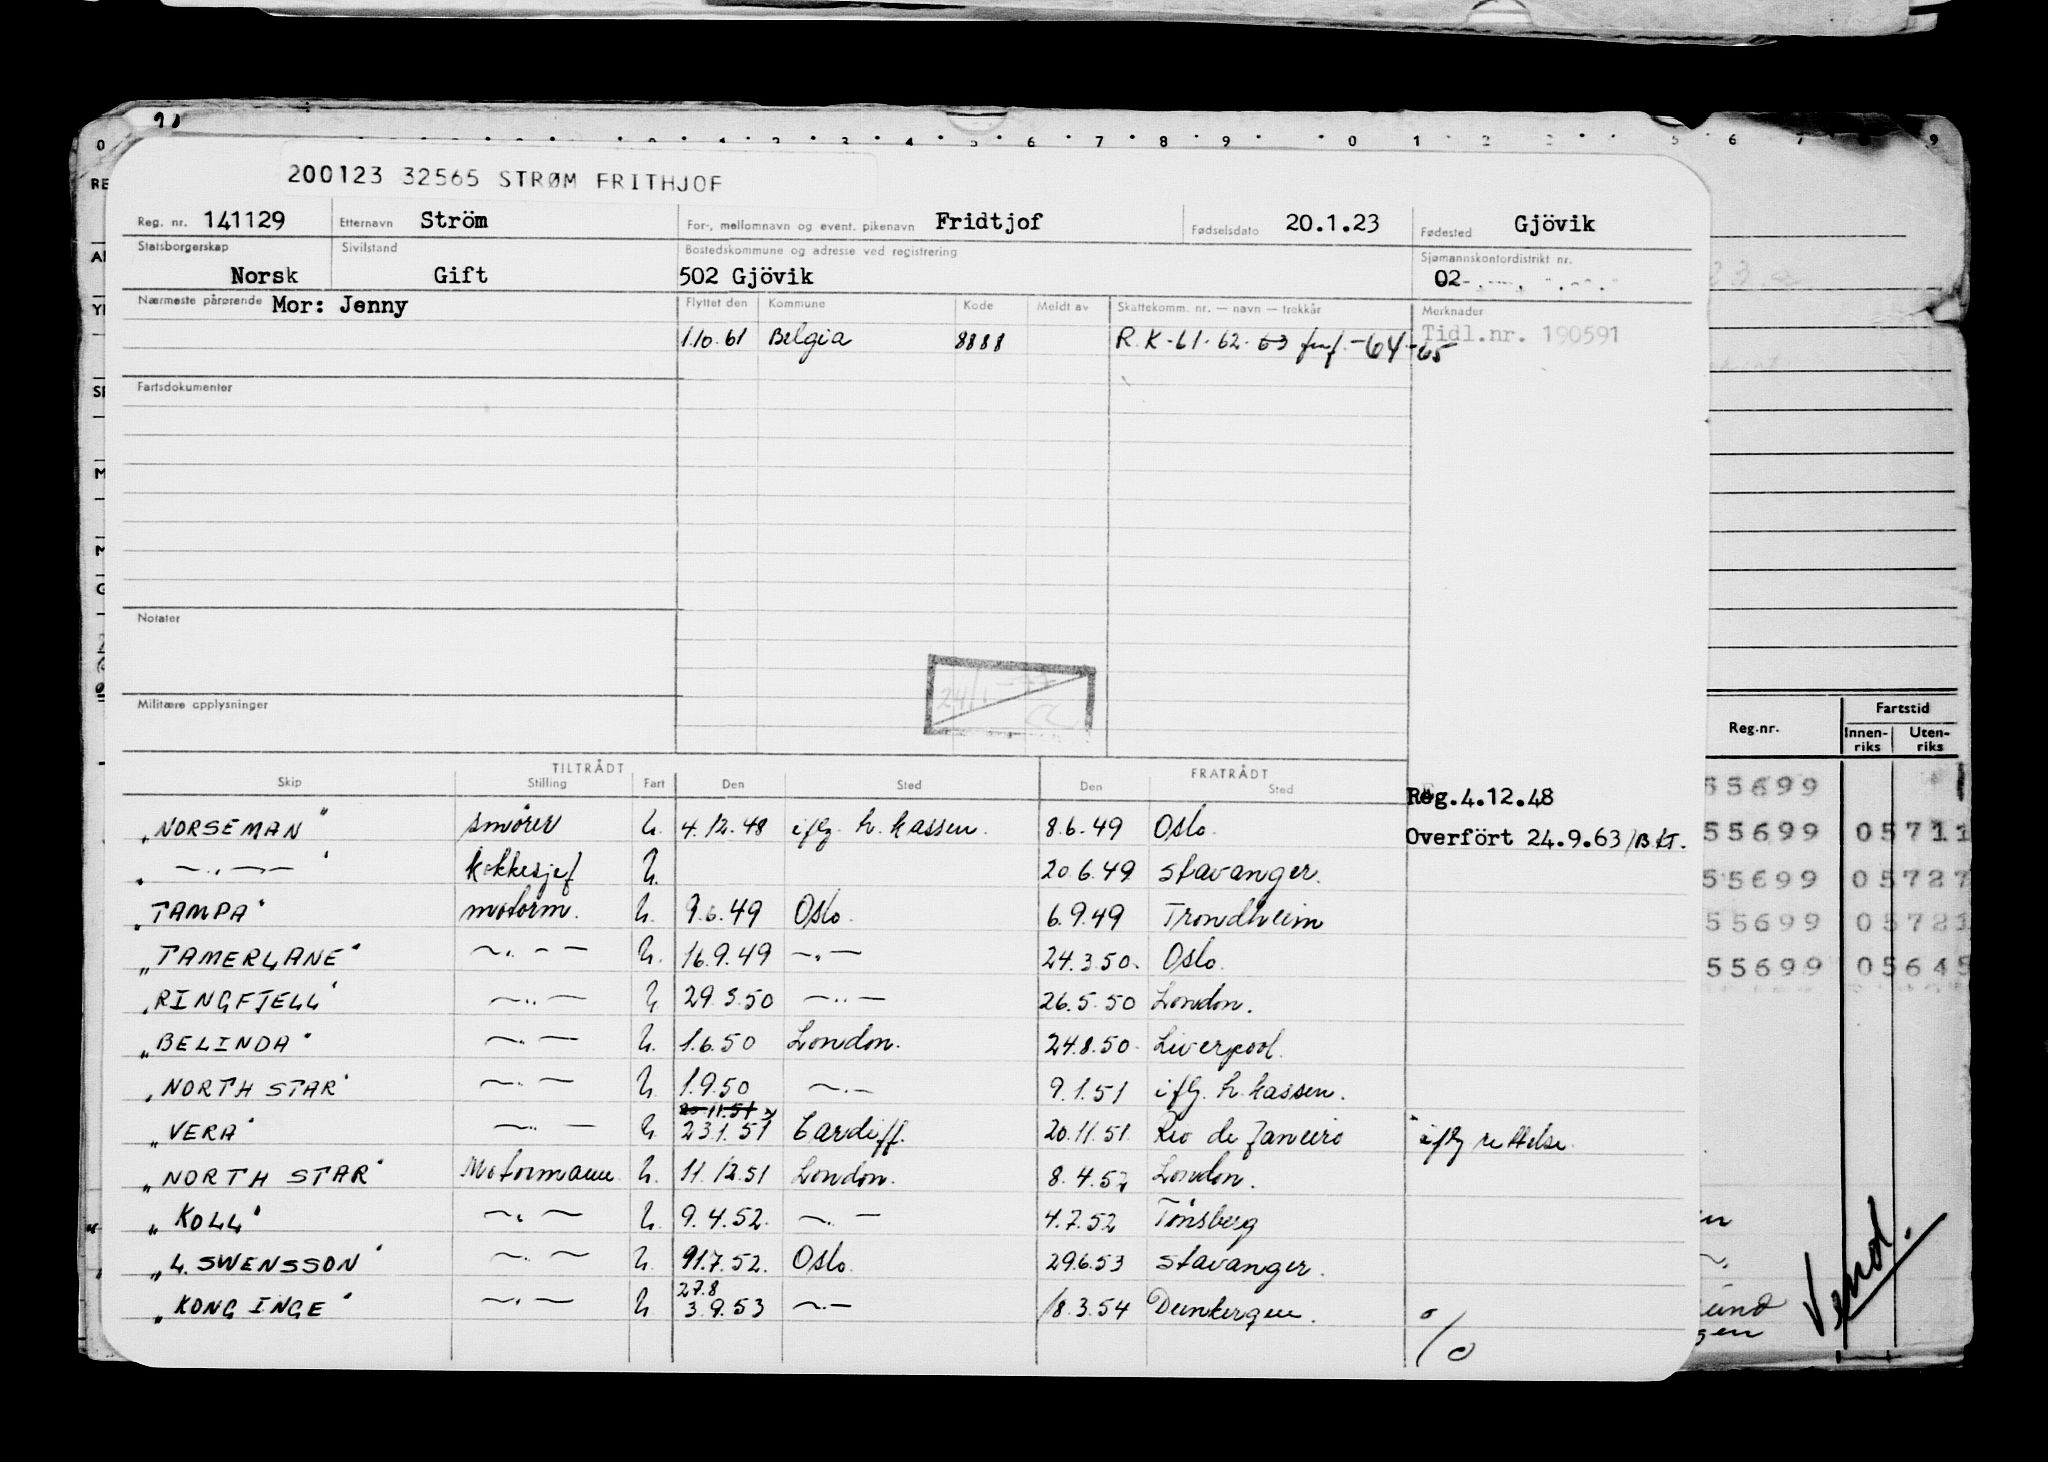 0 1 2 3 4 5 6 7 8 9 0 1 2 3 5 6 7 8 9
200123 32565 STRØM FRITHJOF
Reg. nr. 141129 Etternavn Ström For-, mellomnavn og event. pikenavn Fridtjof Fødselsdato 20.1.23 Fødested Gjövik
Statsborgerskap Norsk Sivilstand Gift Bostedskommune og adresse ved registrering 502 Gjövik Sjømannskontordistrikt nr. 02
Nærmeste pårørende Mor: Jenny Flyttet den Kommune Kode Meldt av Skattekomm. nr. — navn — trekkår Merknader
1.10.61 Belgia 8888 R.K-61-62-63 -64-65 Tidl.nr. 190591
Fartsdokumenter
Notater
24/1
Militære opplysninger
Reg.nr. Fartstid
Innen-riks Uten-riks
TILTRÅDT FRATRÅDT
Skip Stilling Fart Den Sted Den Sted
Reg.4.12.48
55699
„NORSEMAN" smörer U. 4.12.48 iflg. h. kassen. 8.6.49 Oslo.
Overfört 24.9.63/BKT.
55699 05711
„ —„— " kokkesjef U. 20.6.49 Stavanger.
55699 05727
„TAMPA" motorm. U. 9.6.49 Oslo. 6.9.49 Trondheim
55699 05721
„TAMERLANE" —„— U. 16.9.49 —„— 24.3.50. Oslo.
55699 05645
„RINGFJELL" —„— U 29.3.50 —„— 26.5.50 London.
„BELINDA" —„— U. 1.6.50 London. 24.8.50. Liverpool.
„NORTH STAR" —„— U. 1.9.50 —„— 9.1.51 iflg. h. kassen.
20 11.51 x
„VERA" —„— U 23.1.51 Cardiff. 20.11.51. Rio de Janeiro iflg rettelse.
„NORTH STAR" Motormann U. 11.12.51 London. 8.4.52 London.
„KOLL" —„— U. 9.4.52. —„— 4.7.52 Tönsberg
„L. SWENSSON" —„— U. 91.7.52. Oslo. 29.6.53 Stavanger.
27.8
„KONG INGE" —„— U. 3.9.53 —„— 18.3.54 Dunkerque.
Vend.